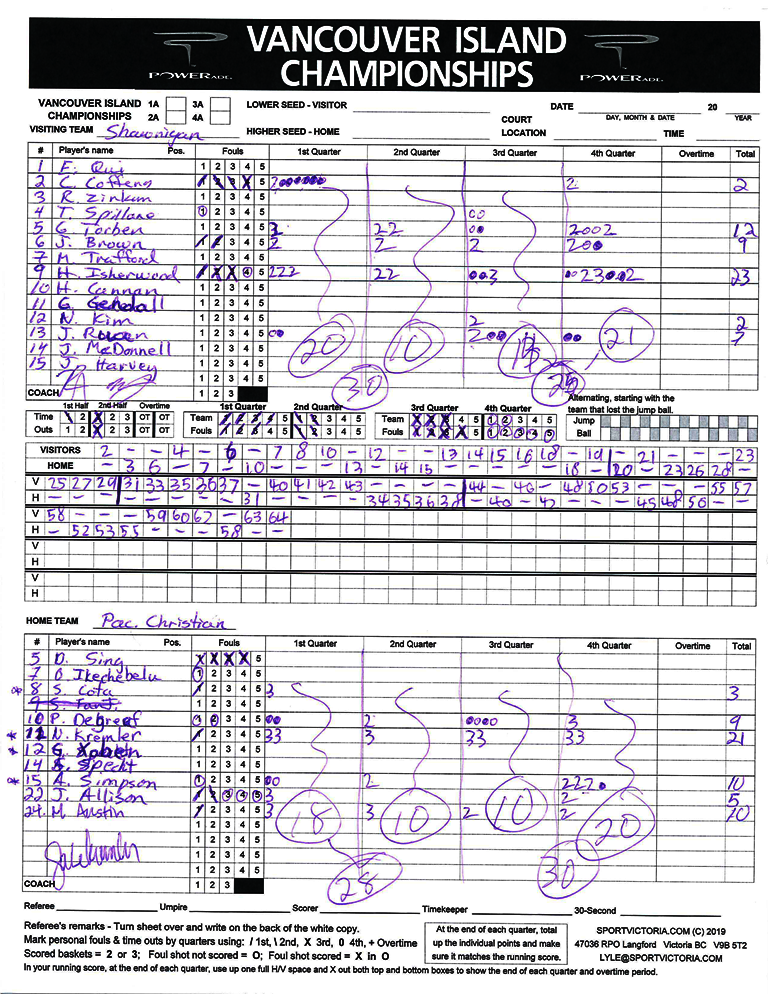 VANCOUVER ISLAND
CHAMPIONSHIPS
POWERADE POWERADE
VANCOUVER ISLAND 1A 3A LOWER SEED - VISITOR DATE 20
CHAMPIONSHIPS 2A 4A COURT DAY, MONTH & DATE YEAR
VISITING TEAM Shawnigan HIGHER SEED - HOME LOCATION TIME
# Player's name Pos. Fouls 1st Quarter 2nd Quarter 3rd Quarter 4th Quarter Overtime Total
1 E. 1 2 3 4 5
2 C. Coffeng 5 2 2 2
3 R. Zinkum 1 2 3 4 5
4 T. Spillane 1 2 3 4 5 00
5 G. Torben 1 2 3 4 5 2 22 2002 12
6 J. Brown 3 4 5 2 2 2 9
7 M. Trafford 1 2 3 4 5
9 H. Isherwood X X 4 5 222 22 23
10 H. Cannan 1 2 3 4 5
11 G. Gendall 1 2 3 4 5
12 N. Kim 1 2 3 4 5 2 2
13 J. 1 2 3 4 5 2 7
14 J. McDonnell 1 2 3 4 5
15 J. Harvey 1 2 3 4 5
20 10 21
COACH 1 2 3 30
Alternating, starting with the
team that lost the jump ball.
1st Half 2nd Half Overtime 1st Quarter 2nd Quarter 3rd Quarter 4th Quarter
Time 1 2 X 2 3 OT OT Team 5 Team X X X 4 5 1 2 3 4 5 Jump
Outs 1 2 X 2 3 OT OT Fouls 5 Fouls X X X X 5 1 2 3 4 5 Ball
VISITORS 2 - - 4 - 6 - 7 8 10 - 12 - - 13 14 15 16 18 - 19 - 21 - - - 23
HOME - 3 6 - 7 - 10 - - - 13 - 14 15 18 - 20 - 23 26 28 -
V 25 27 29 31 33 35 36 37 - 40 41 42 43 - - - - 44 - 46 - 48 50 53 - - - 55 57
H - - - - 31 - - - - 34 35 36 38 - 40 - 42 - - - 45 48 50 - -
V 58 - - - 59 60 62 - 63 64
H - 52 53 55 - - - 58 - -
V
H
V
H
HOME TEAM Pac. Christian
# Player's name Pos. Fouls 1st Quarter 2nd Quarter 3rd Quarter 4th Quarter Overtime Total
5 D. Sing X X X X 5
7 O. Ikechebelu 1 2 3 4 5
8 S. Cota 2 3 4 5 3 3
9
10 P. Debreef 1 2 3 4 5 2 3 9
11 N. Kremler 2 3 4 5 33 3 33 33 21
12 G. 1 2 3 4 5
14 S. Specht 1 2 3 4 5
15 A. Simpson 1 2 3 4 5 2 222 10
22 J. Allison 3 4 5 3 2 5
24 M. Austin 2 3 4 5 3 3 2 2 10
18 10 10 20
1 2 3 4 5
1 2 3 4 5
1 2 3 4 5
1 2 3 4 5
COACH 1 2 3 28 30
Referee Umpire Scorer Timekeeper 30-Second
Referee's remarks - Turn sheet over and write on the back of the white copy.
Mark personal fouls & time outs by quarters using: / 1st, \ 2nd, X 3rd, 0 4th, + Overtime
Scored baskets = 2 or 3; Foul shot not scored = O; Foul shot scored = X in O
In your running score, at the end of each quarter, use up one full H/V space and X out both top and bottom boxes to show the end of each quarter and overtime period.
At the end of each quarter, total
up the individual points and make
sure it matches the running score.
SPORTVICTORIA.COM (C) 2019
47036 RPO Langford Victoria BC V9B 5T2
LYLE@SPORTVICTORIA.COM